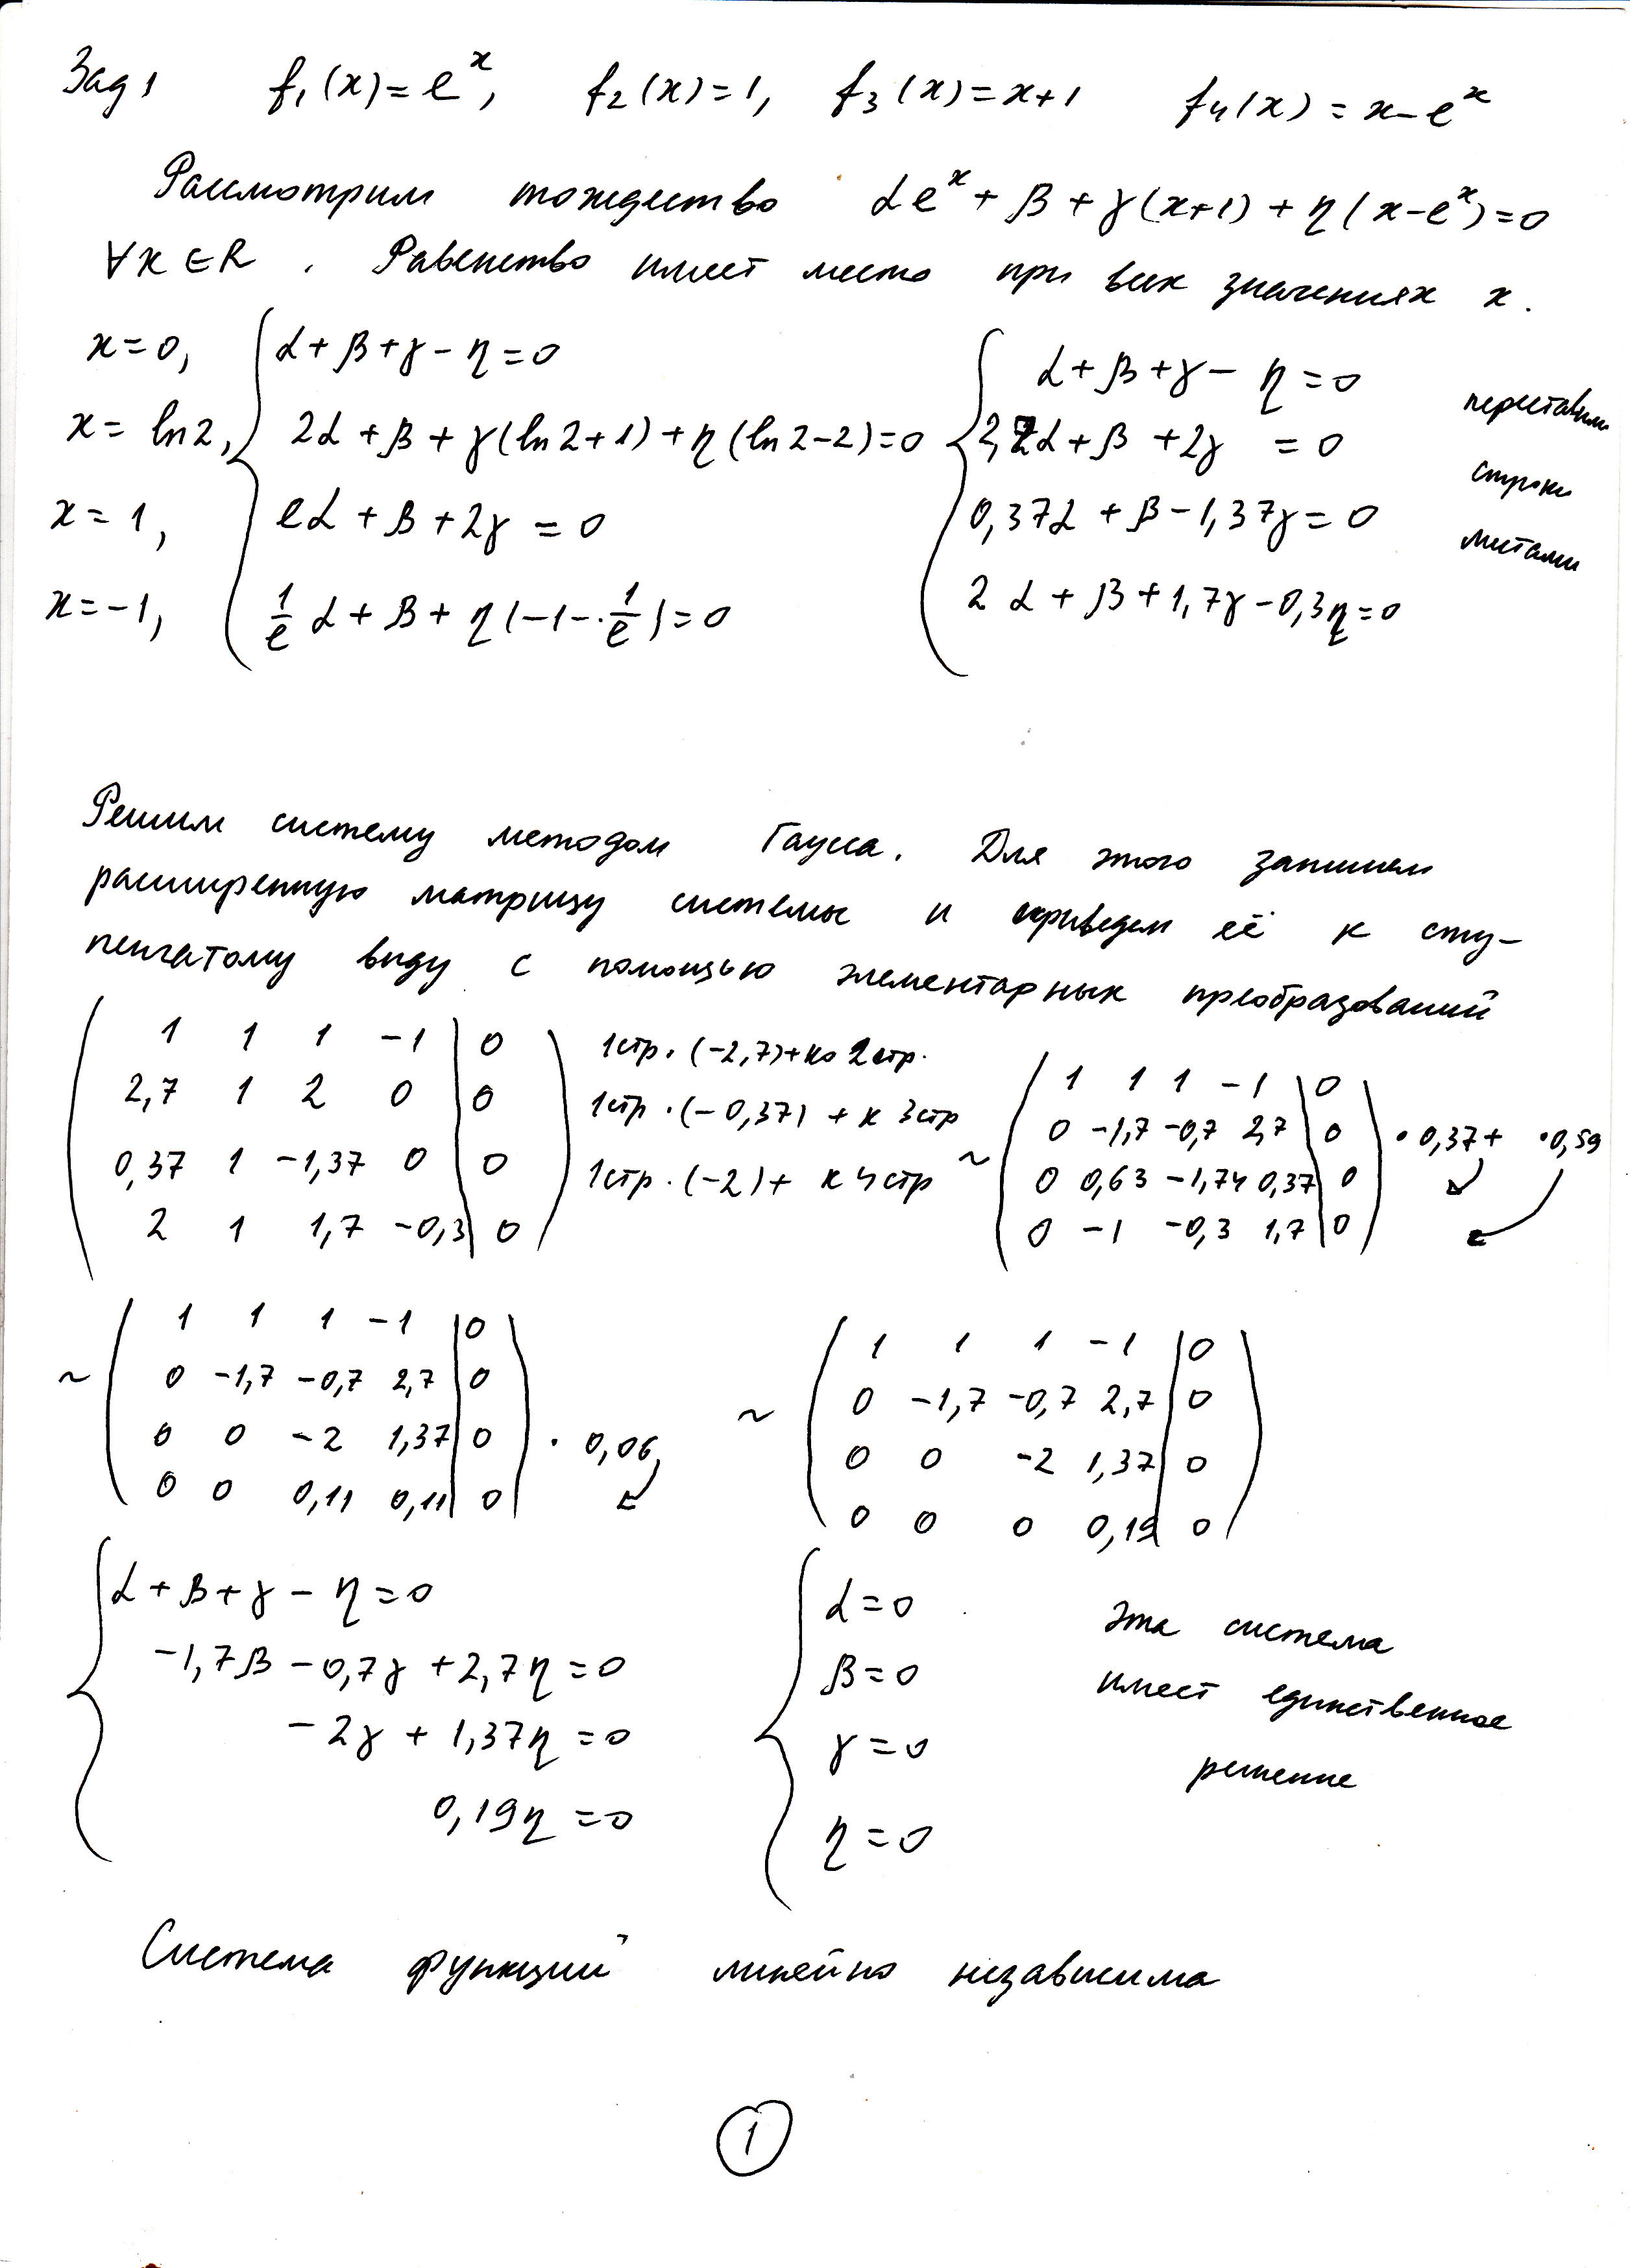 Зад 1 f₁(x)=eˣ, f₂(x)=1, f₃(x)=x+1 f₄(x)=x-eˣ
Рассмотрим тождество αeˣ+β+γ(x+1)+η(x-eˣ)=0
∀x∈R. Равенство имеет место при всех значениях x.
x=0, α+β+γ-η=0
x=ln2, 2α+β+γ(ln2+1)+η(ln2-2)=0
x=1, eα+β+2γ=0
x=-1, 1/e α+β+η(-1-1/e)=0
α+β+γ-η=0
2,7α+β+2γ=0
0,37α+β-1,37γ=0
2α+β+1,7γ-0,3η=0
переставим
строки
местами
Решим систему методом Гаусса. Для этого запишем
расширенную матрицу системы и приведем её к сту-
пенчатому виду с помощью элементарных преобразований
1 1 1 -1 | 0
2,7 1 2 0 | 0
0,37 1 -1,37 0 | 0
2 1 1,7 -0,3 | 0
1стр·(-2,7)+ко 2стр.
1стр·(-0,37)+к 3стр
1стр·(-2)+ к 4стр
~
1 1 1 -1 | 0
0 -1,7 -0,7 2,7 | 0
0 0,63 -1,74 0,37 | 0
0 -1 -0,3 1,7 | 0
·0,37+ ·0,59
~
1 1 1 -1 | 0
0 -1,7 -0,7 2,7 | 0
0 0 -2 1,37 | 0
0 0 0,11 0,11 | 0
·0,06
~
1 1 1 -1 | 0
0 -1,7 -0,7 2,7 | 0
0 0 -2 1,37 | 0
0 0 0 0,19 | 0
α+β+γ-η=0
-1,7β-0,7γ+2,7η=0
-2γ+1,37η=0
0,19η=0
α=0
β=0
γ=0
η=0
Эта система
имеет единственное
решение
Система функций линейно независима
1